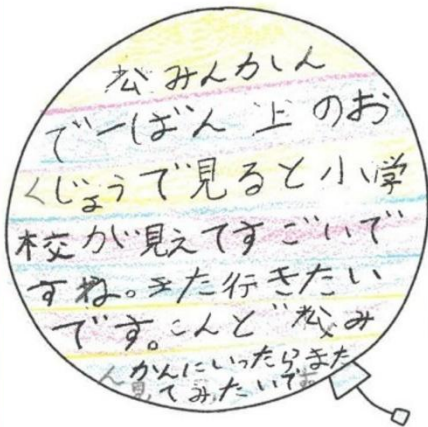 公みんかん
で一ばん上のお
くじょうで見ると小学
校が見えてすごいで
すね。また行きたい
です。こんど公み
んかんにいったらまた
見てみたいです